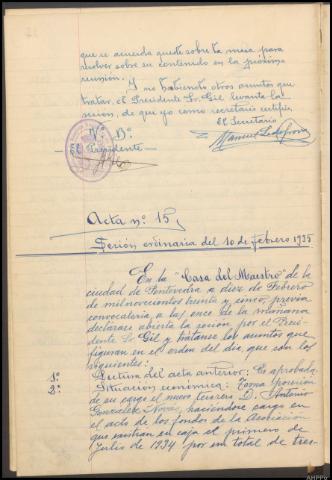 que se acuerda quede sobre la mesa para
resolver sobre su contenido en la próxima
reunión.
Y no habiendo otros asuntos que
tratar, el Presidente Sr. Gil levanta la
sesión, de que yo como secretario certifico.
El Secretario
Vº Bº
El Presidente
Manuel
Acta nº 15,
Sesión ordinaria del 10 de Febrero 1935
En la "Casa del Maestro" de la
ciudad de Pontevedra a diez de Febrero
de mil novecientos treinta y cinco, previa
convocatoria, a las once de la mañana
declárase abierta la sesión por el Presi-
dente Sr. Gil y trátanse los asuntos que
figuran en el orden del día, que son los
siguientes:
1º Lectura del acta anterior: Es aprobada.
2º Situación económica: Toma posesión
de su cargo el nuevo tesorero D. Antonio
González Novás, haciéndose cargo en
el acto de los fondos de la Asociación
que existían en caja el primero de
Julio de 1934 por un total de tres-
AHPPo